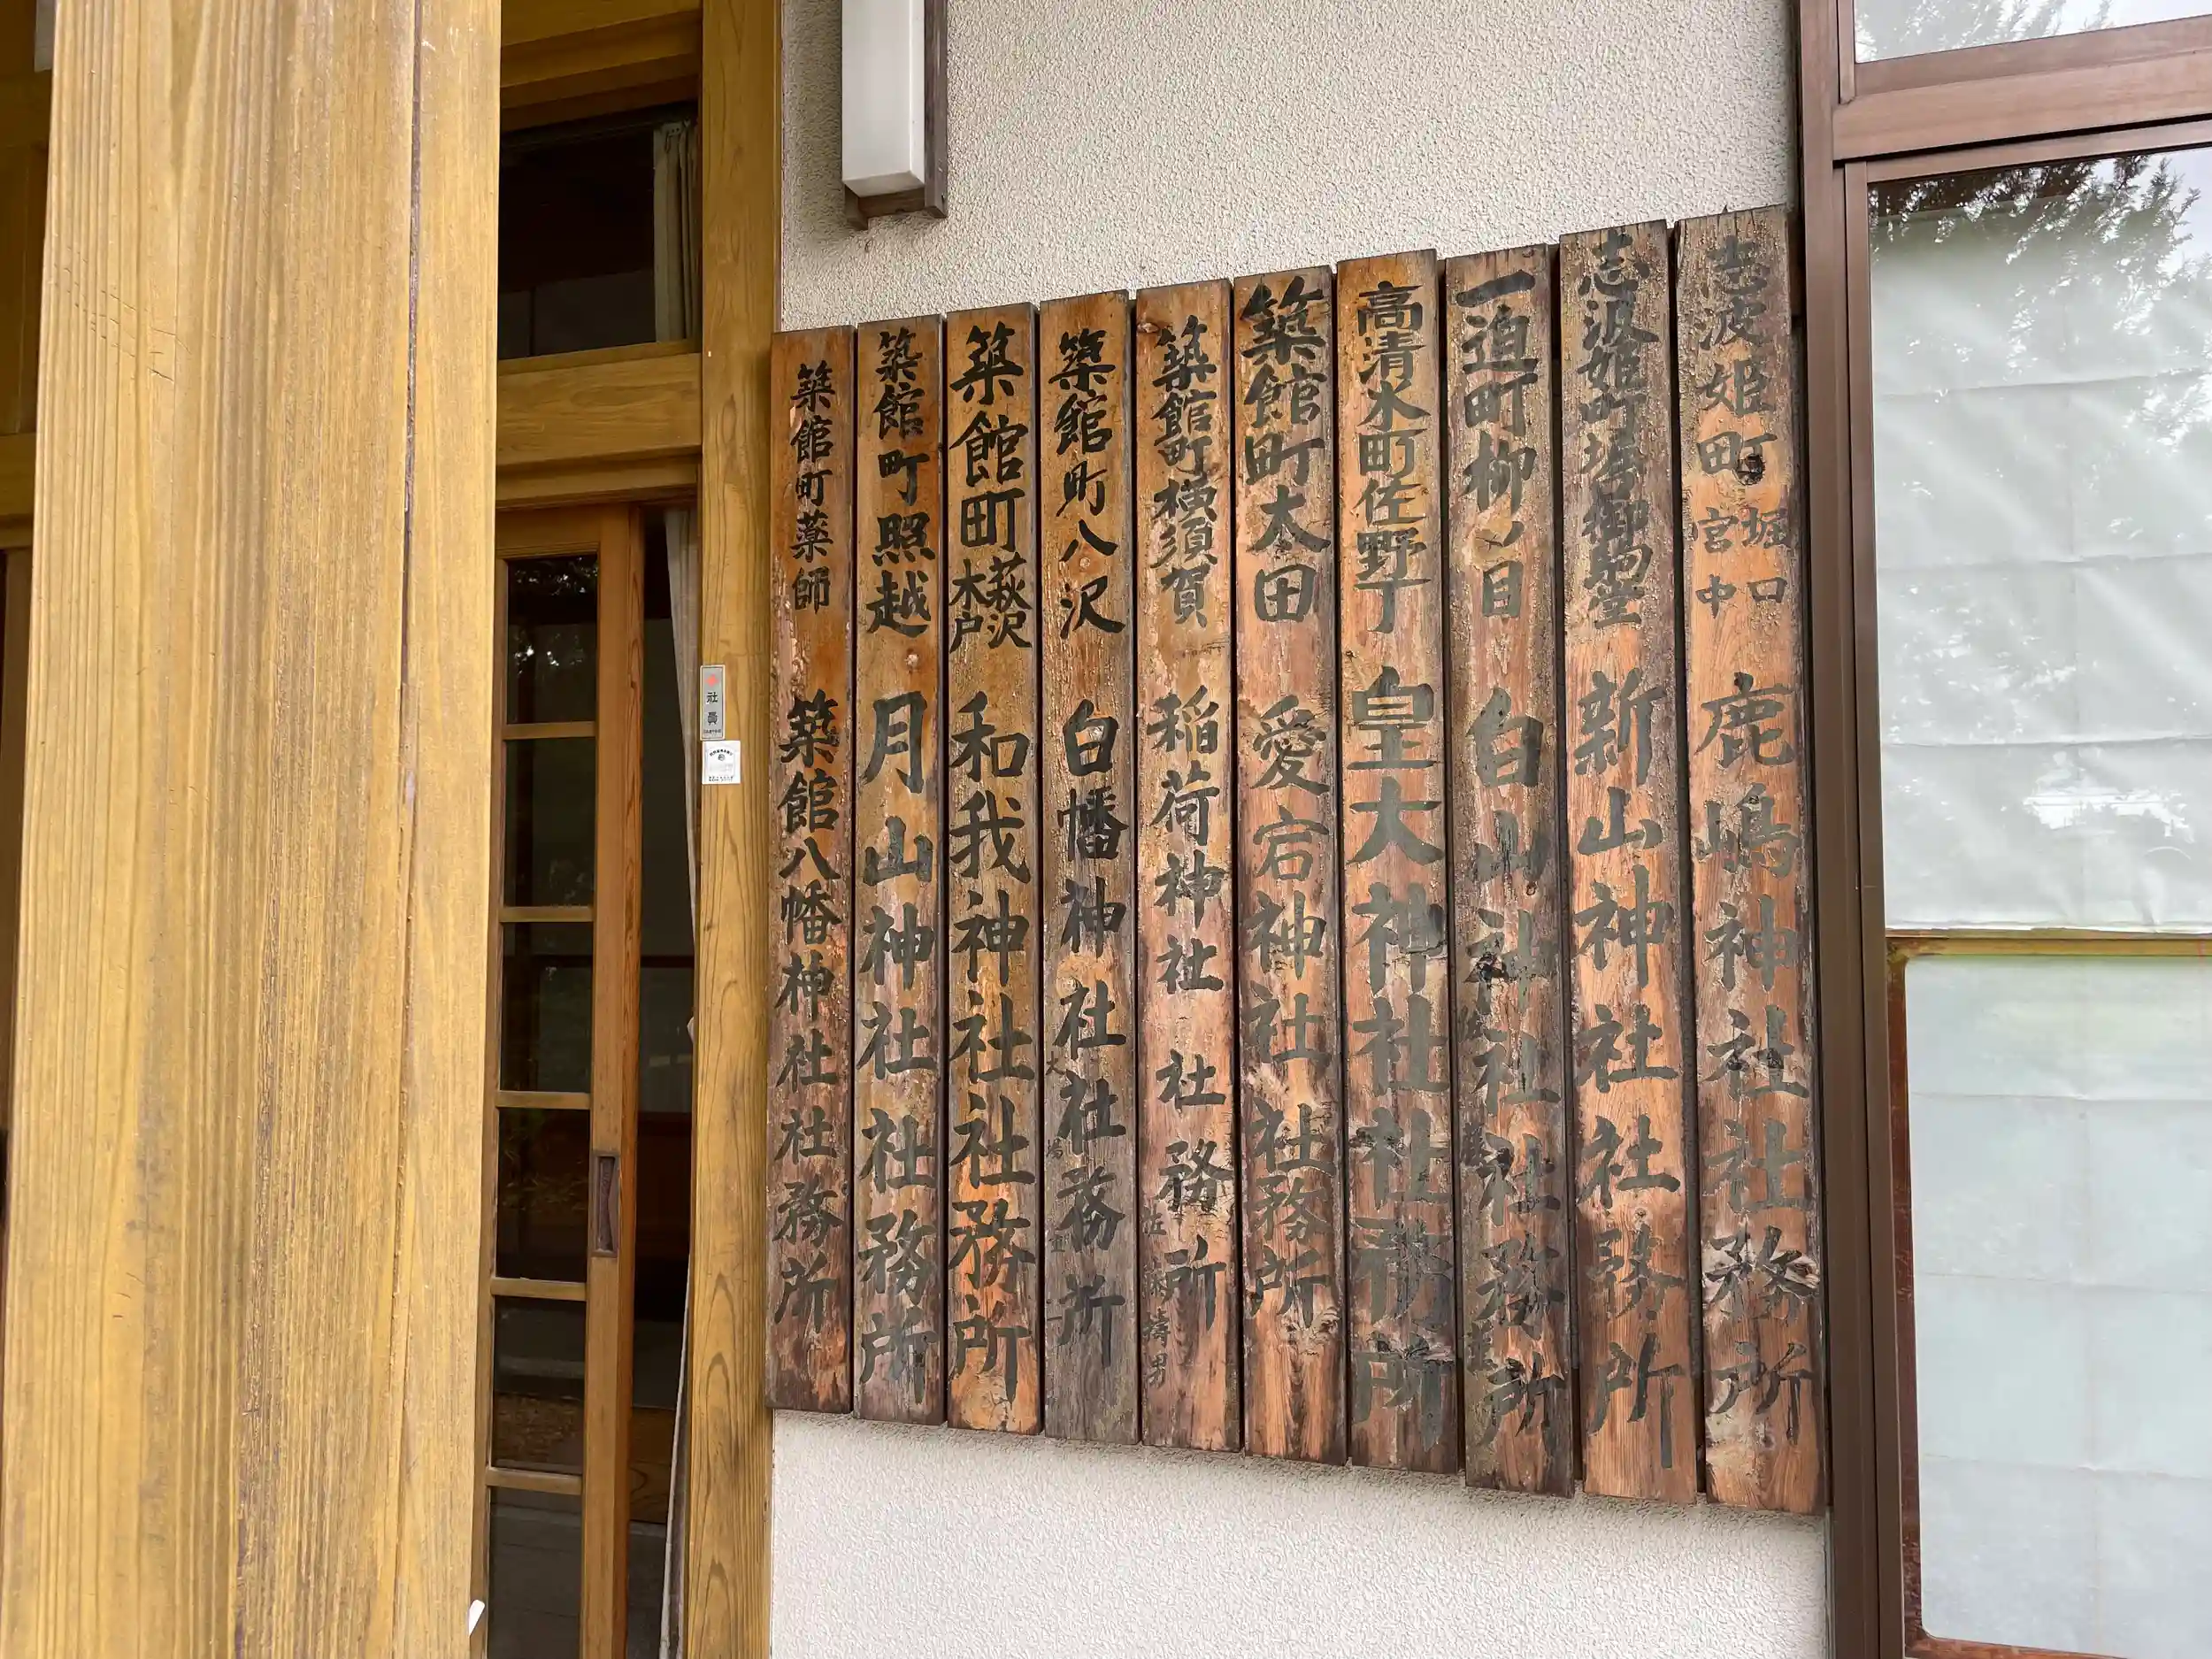 志波姫町堀口宮中 鹿嶋神社社務所
志波姫町塔御駒堂 新山神社社務所
一迫町柳ノ目 白山神社社務所
高清水町佐野丁 皇大神社社務所
築館町太田 愛宕神社社務所
築館町横須賀 稲荷神社社務所
築館町八沢 白幡神社社務所
築館町萩沢木戸 和我神社社務所
築館町照越 月山神社社務所
築館町薬師 築館八幡神社社務所
社員